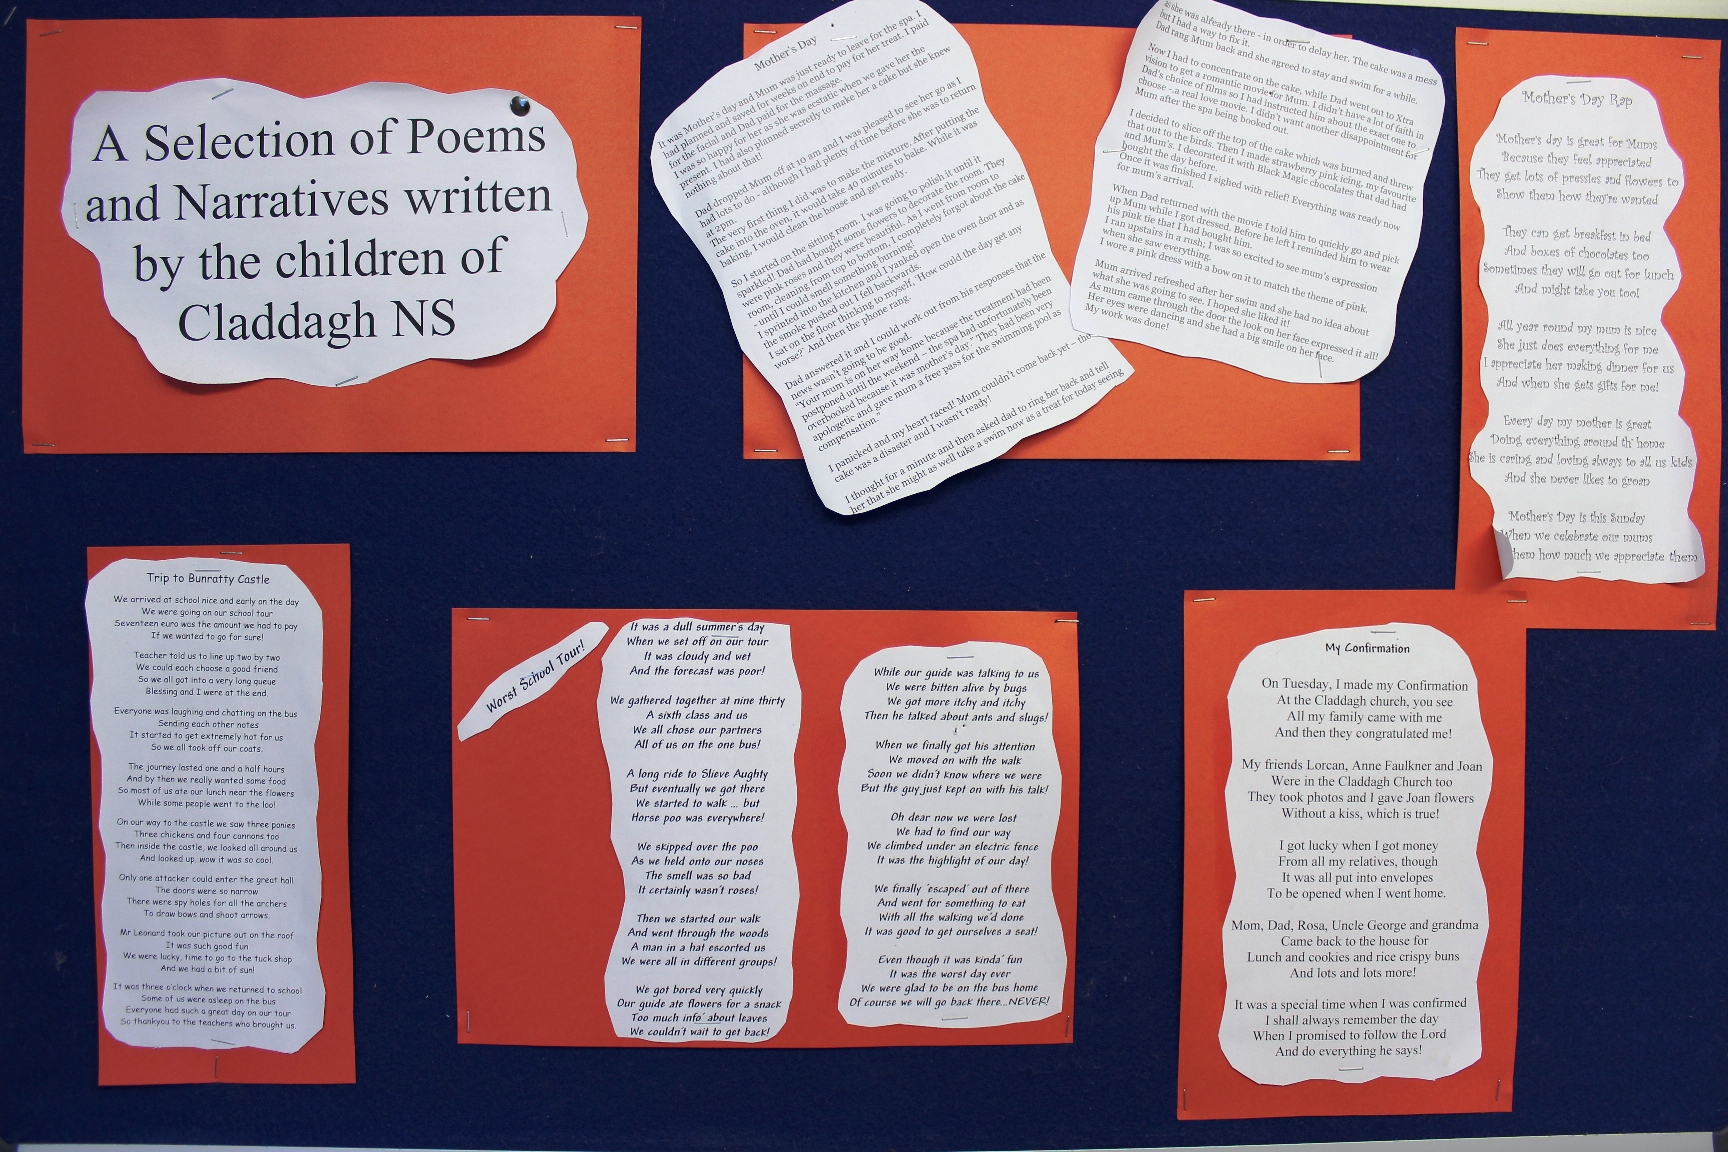 A Selection of Poems
and Narratives written
by the children of
Claddagh NS
Mother's Day
It was Mother's day and Mum was just ready to leave for the spa. I
had planned and saved for weeks on end to pay for her treat. I paid
for the facial and Dad paid for the massage.
I was so happy for her as she was ecstatic when we gave her the
present. I had also planned secretly to make her a cake but she knew
nothing about that!
Dad dropped Mum off at 10 am and I was pleased to see her go as I
had lots to do - although I had plenty of time before she was to return
at 2pm.
The very first thing I did was to make the mixture. After putting the
cake into the oven, it would take 40 minutes to bake. While it was
baking, I would clean the house and get ready.
So I started on the sitting room. I was going to polish it until it
sparkled! Dad had bought some flowers to decorate the room. They
were pink roses and they were beautiful. As I went from room to
room, cleaning from top to bottom, I completely forgot about the cake
- until I could smell something burning!
I sprinted into the kitchen and I yanked open the oven door and as
the smoke pushed out I fell backwards.
I sat on the floor thinking to myself, "How could the day get any
worse?" And then the phone rang.
Dad answered it and I could work out from his responses that the
news wasn't going to be good.
"Your mum is on her way home because the treatment had been
postponed until the weekend – the spa had unfortunately been
overbooked because it was mother's day." They had been very
apologetic and gave mum a free pass for the swimming pool as
compensation."
I panicked and my heart raced! Mum couldn't come back yet – the
cake was a disaster and I wasn't ready!
I thought for a minute and then asked dad to ring her back and tell
her that she might as well take a swim now as a treat for today seeing
as she was already there - in order to delay her. The cake was a mess
but I had a way to fix it.
Dad rang Mum back and she agreed to stay and swim for a while.
Now I had to concentrate on the cake, while Dad went out to Xtra
vision to get a romantic movie for Mum. I didn't have a lot of faith in
Dad's choice of films so I had instructed him about the exact one to
choose - a real love movie. I didn't want another disappointment for
Mum after the spa being booked out.
I decided to slice off the top of the cake which was burned and threw
that out to the birds. Then I made strawberry pink icing, my favourite
and Mum's. I decorated it with Black Magic chocolates that dad had
bought the day before.
Once it was finished I sighed with relief! Everything was ready now
for mum's arrival.
When Dad returned with the movie I told him to quickly go and pick
up Mum while I got dressed. Before he left I reminded him to wear
his pink tie that I had bought him.
I ran upstairs in a rush; I was so excited to see mum's expression
when she saw everything.
I wore a pink dress with a bow on it to match the theme of pink.
Mum arrived refreshed after her swim and she had no idea about
what she was going to see. I hoped she liked it!
As mum came through the door the look on her face expressed it all!
Her eyes were dancing and she had a big smile on her face.
My work was done!
Mother's Day Rap
Mother's day is great for Mums
Because they feel appreciated
They get lots of pressies and flowers to
Show them how they're wanted
They can get breakfast in bed
And boxes of chocolates too
Sometimes they will go out for lunch
And might take you too!
All year round my mum is nice
She just does everything for me
I appreciate her making dinner for us
And when she gets gifts for me!
Every day my mother is great
Doing everything around th' home
She is caring and loving always to all us kids
And she never likes to groan
Mother's Day is this Sunday
When we celebrate our mums
hem how much we appreciate them
Trip to Bunratty Castle
We arrived at school nice and early on the day
We were going on our school tour
Seventeen euro was the amount we had to pay
If we wanted to go for sure!
Teacher told us to line up two by two
We could each choose a good friend
So we all got into a very long queue
Blessing and I were at the end.
Everyone was laughing and chatting on the bus
Sending each other notes
It started to get extremely hot for us
So we all took off our coats.
The journey lasted one and a half hours
And by then we really wanted some food
So most of us ate our lunch near the flowers
While some people went to the loo!
On our way to the castle we saw three ponies
Three chickens and four cannons too
Then inside the castle, we looked all around us
And looked up, wow it was so cool.
Only one attacker could enter the great hall
The doors were so narrow
There were spy holes for all the archers
To draw bows and shoot arrows.
Mr Leonard took our picture out on the roof
It was such good fun
We were lucky, time to go to the tuck shop
And we had a bit of sun!
It was three o'clock when we returned to school
Some of us were asleep on the bus
Everyone had such a great day on our tour
So thankyou to the teachers who brought us.
Worst School Tour!
It was a dull summer's day
When we set off on our tour
It was cloudy and wet
And the forecast was poor!
We gathered together at nine thirty
A sixth class and us
We all chose our partners
All of us on the one bus!
A long ride to Slieve Aughty
But eventually we got there
We started to walk ... but
Horse poo was everywhere!
We skipped over the poo
As we held onto our noses
The smell was so bad
It certainly wasn't roses!
Then we started our walk
And went through the woods
A man in a hat escorted us
We were all in different groups!
We got bored very quickly
Our guide ate flowers for a snack
Too much info' about leaves
We couldn't wait to get back!
While our guide was talking to us
We were bitten alive by bugs
We got more itchy and itchy
Then he talked about ants and slugs!
When we finally got his attention
We moved on with the walk
Soon we didn't know where we were
But the guy just kept on with his talk!
Oh dear now we were lost
We had to find our way
We climbed under an electric fence
It was the highlight of our day!
We finally 'escaped' out of there
And went for something to eat
With all the walking we'd done
It was good to get ourselves a seat!
Even though it was kinda' fun
It was the worst day ever
We were glad to be on the bus home
Of course we will go back there...NEVER!
My Confirmation
On Tuesday, I made my Confirmation
At the Claddagh church, you see
All my family came with me
And then they congratulated me!
My friends Lorcan, Anne Faulkner and Joan
Were in the Claddagh Church too
They took photos and I gave Joan flowers
Without a kiss, which is true!
I got lucky when I got money
From all my relatives, though
It was all put into envelopes
To be opened when I went home.
Mom, Dad, Rosa, Uncle George and grandma
Came back to the house for
Lunch and cookies and rice crispy buns
And lots and lots more!
It was a special time when I was confirmed
I shall always remember the day
When I promised to follow the Lord
And do everything he says!